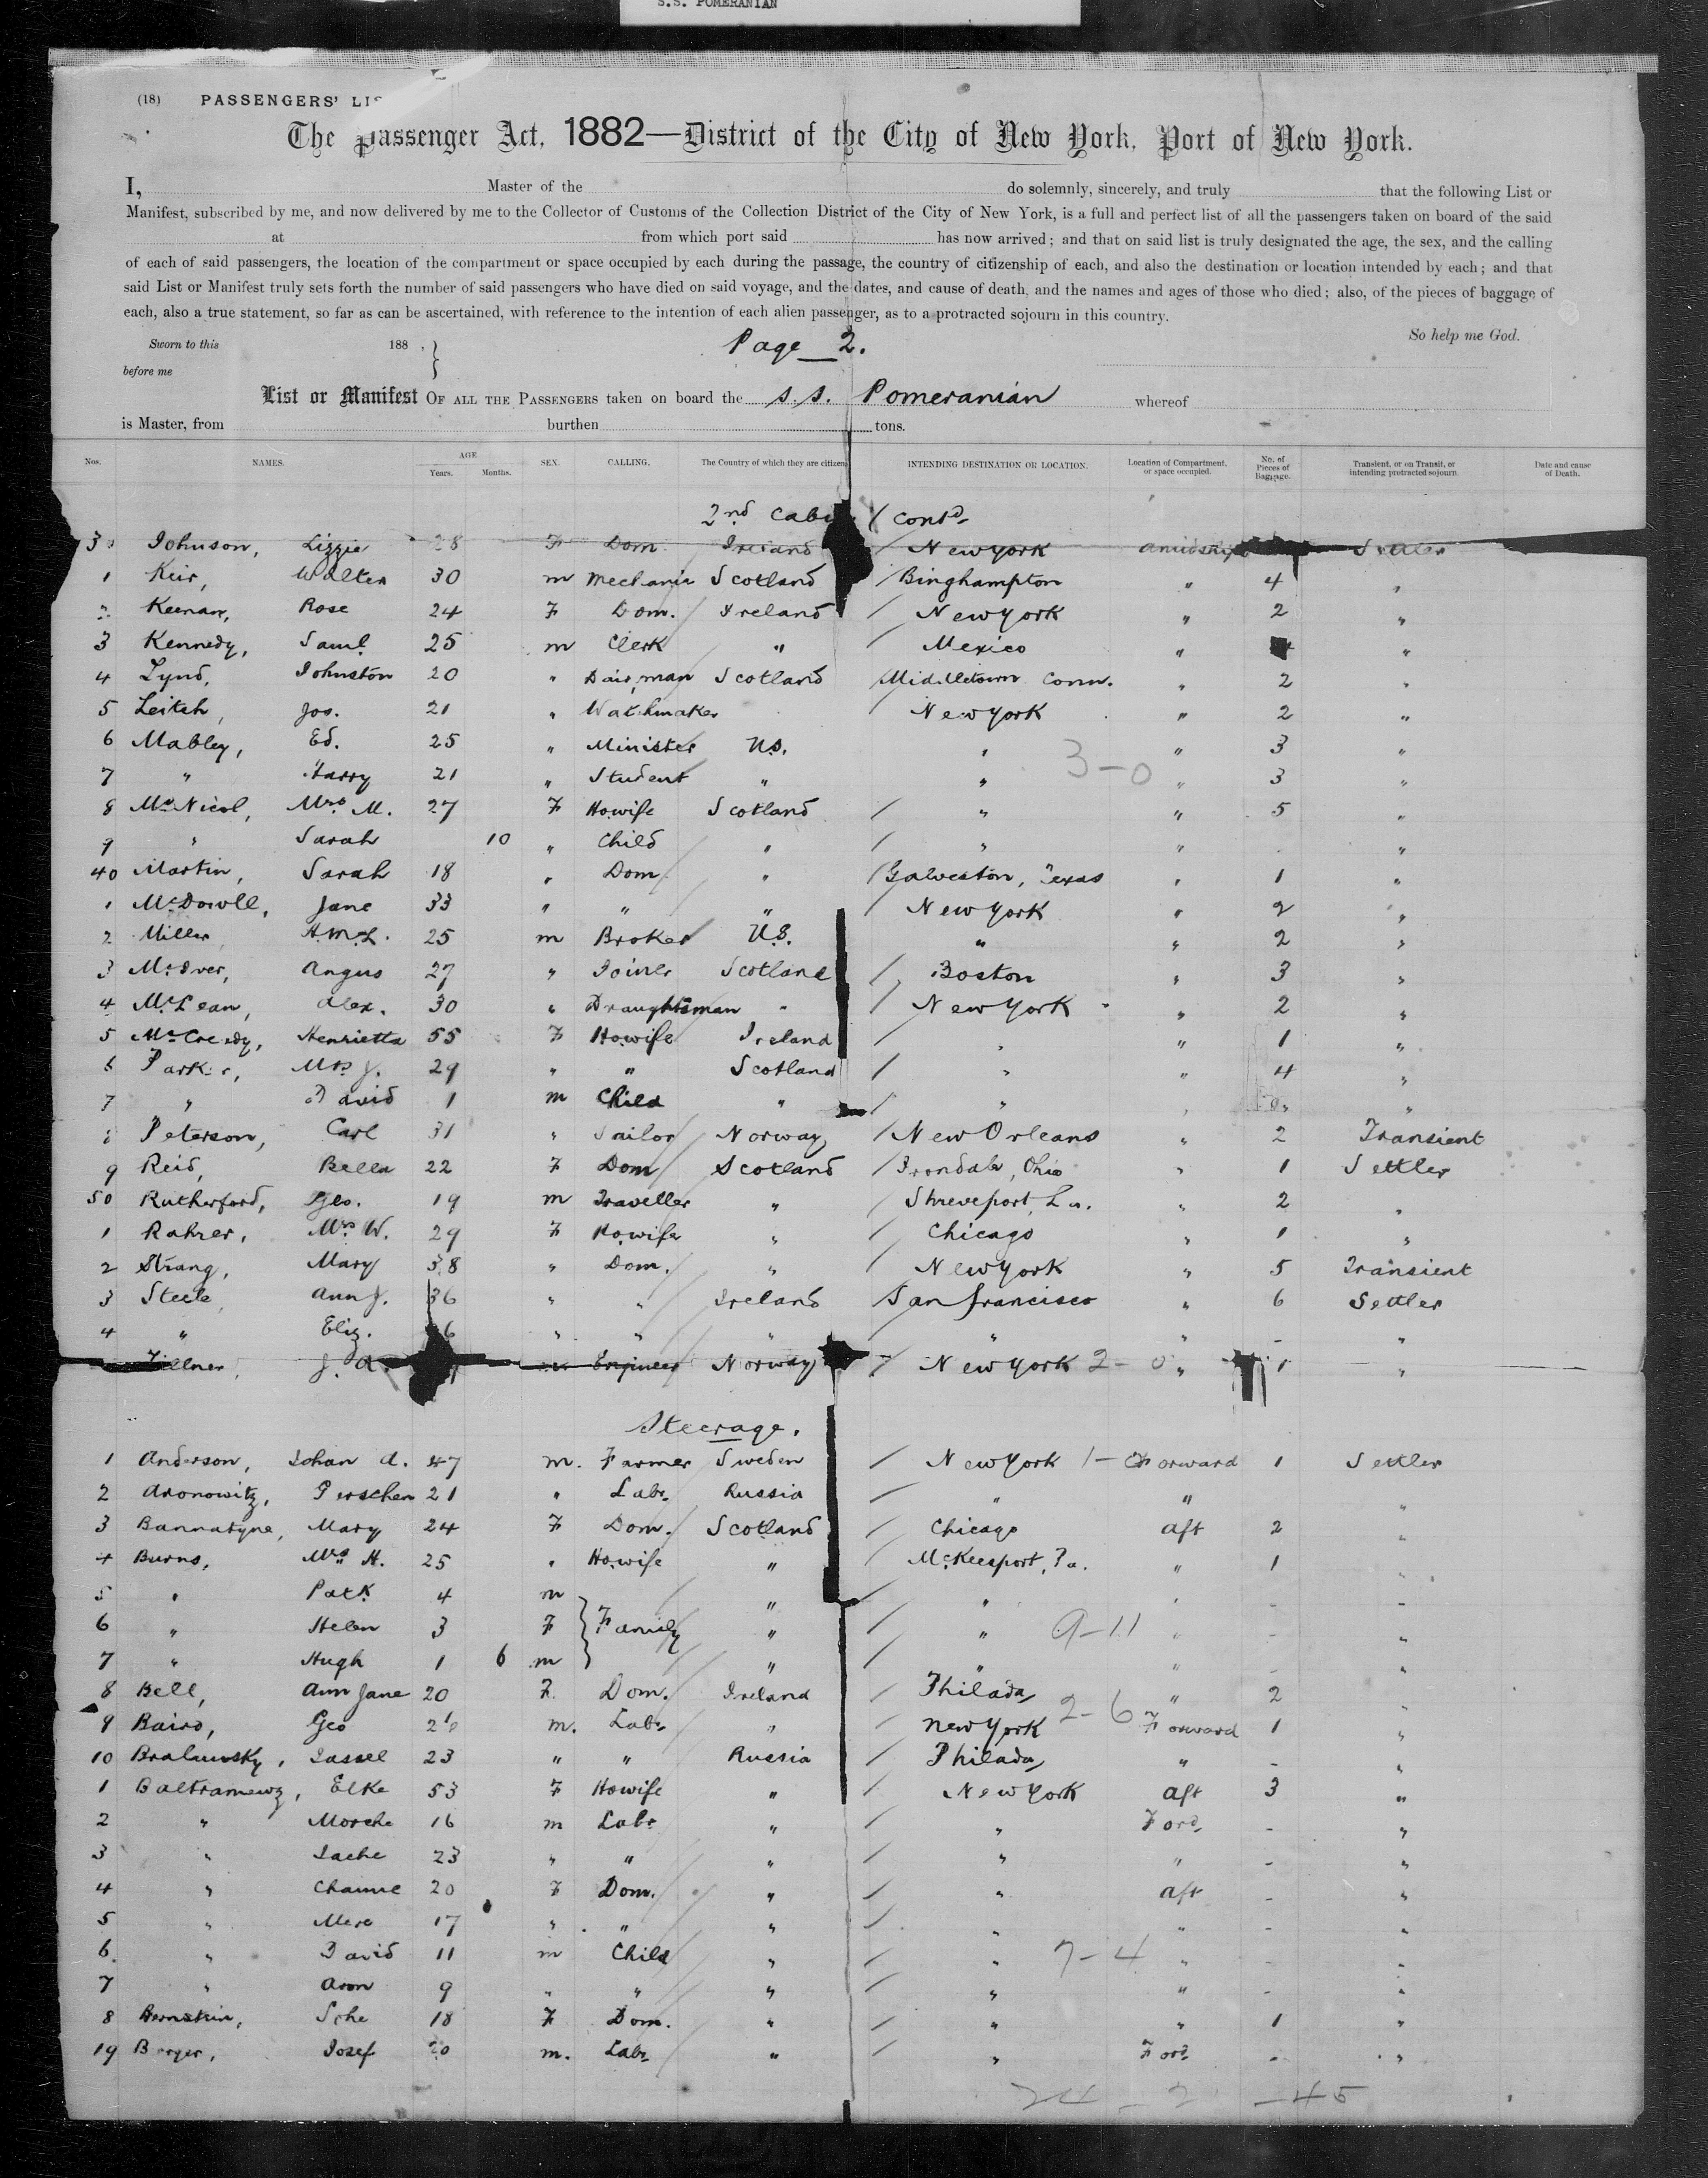 S.S. POMERANIAN
(18) PASSENGERS' LIS
The Passenger Act, 1882—District of the City of New York, Port of New York.
I, Master of the do solemnly, sincerely, and truly that the following List or
Manifest, subscribed by me, and now delivered by me to the Collector of Customs of the Collection District of the City of New York, is a full and perfect list of all the passengers taken on board of the said
at from which port said has now arrived; and that on said list is truly designated the age, the sex, and the calling
of each of said passengers, the location of the compartment or space occupied by each during the passage, the country of citizenship of each, and also the destination or location intended by each; and that
said List or Manifest truly sets forth the number of said passengers who have died on said voyage, and the dates, and cause of death, and the names and ages of those who died; also, of the pieces of baggage of
each, also a true statement, so far as can be ascertained, with reference to the intention of each alien passenger, as to a protracted sojourn in this country.
So help me God.
Sworn to this 188 ,
before me
Page 2.
List or Manifest OF ALL THE PASSENGERS taken on board the S.S. Pomeranian whereof
is Master, from burthen tons.
Nos. NAMES. AGE Years. Months. SEX. CALLING. The Country of which they are citizens INTENDING DESTINATION OR LOCATION. Location of Compartment, or space occupied. No. of Pieces of Baggage. Transient, or on Transit, or intending protracted sojourn. Date and cause of Death.
2nd Cabin / Contd
30 Johnson, Lizzie 28 F Dom Ireland / New York amidships Settler
1 Keir, Walter 30 m Mechanic Scotland / Binghampton " 4 "
2 Keenan, Rose 24 F Dom. / Ireland / New York " 2 "
3 Kennedy, Saml. 25 m Clerk " / Mexico " "
4 Lynd, Johnston 20 " Dairyman Scotland / Middletown Conn. " 2 "
5 Leitch, Jos. 21 " Watchmaker / New York " 2 "
6 Mabley, Ed. 25 " Minister U.S. " " 3 "
7 " Harry 21 " Student " " 3-0 " 3 "
8 McNicol, Mrs M. 27 F Howife Scotland / " " 5 "
9 " Sarah 10 " Child " / " " "
40 Martin, Sarah 18 " Dom / " / Galveston, Texas " 1 "
1 McDowll, Jane 33 " " " / New York " 2 "
2 Miller H.McL. 25 m Broker U.S. " " 2 "
3 McIver, Angus 27 " Joiner Scotland / Boston " 3 "
4 McLean, Alex. 30 " Draughtsman " / New York " 2 "
5 McCreedy, Henrietta 55 F Howife Ireland / " " 1 "
6 Parker, Mrs J. 29 " " Scotland / " " 4 "
7 " David 1 m Child " / " " "
8 Peterson, Carl 31 " Sailor Norway / New Orleans " 2 Transient
9 Reid, Bella 22 F Dom / Scotland / Irondale, Ohio " 1 Settler
50 Rutherford, Geo. 19 m Traveller " / Shreveport, La. " 2 "
1 Rahrer, Mrs W. 29 F Howife " / Chicago " 1 "
2 Strang, Mary 38 " Dom. / " / New York " 5 Transient
3 Steele, Ann J. 36 " " Ireland / San Francisco " 6 Settler
4 " Eliz. 6 " " " / " " - "
J. A. Engineer Norway / New York 2-0 " 1 "
Steerage.
1 Anderson, Johan A. 47 m. Farmer Sweden / New York 1-0 Forward 1 Settler
2 Aronowitz, Gerschen 21 " Labr Russia / " " "
3 Bannatyne, Mary 24 F Dom. / Scotland / Chicago aft 2 "
4 Burns, Mrs H. 25 " Howife " / McKeesport, Pa. " 1 "
5 " Patk 4 m " / " " - "
6 " Helen 3 F } Family " / " 9-11 " - "
7 " Hugh 1 6 m " / " " - "
8 Bell, Ann Jane 20 F. Dom. / Ireland / Philada " 2 "
9 Baird, Geo m. Labr " / New York 2-6 Forward 1 "
10 Jassel 23 " " Russia / Philada " - "
1 Elke 53 F Howife " / New York aft 3 "
2 " Morche 16 m Labr " / " Ford - "
3 " Jache 23 " " " / " " - "
4 " Chaime 20 F Dom. / " / " aft - "
5 " Mere 17 " " " / " " - "
6 " David 11 m Child " / " 7-4 " - "
7 " Aron 9 " " " / " " - "
8 Bernstein, Sche 18 F Dom. " / " " 1 "
19 Berger, Josef 20 m. Labr " / " Ford - "
24 - 2 - 45